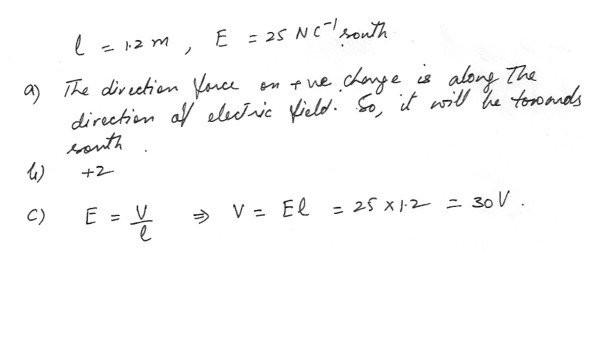 l = 1.2 m , E = 25 NC⁻¹ south
a) The direction force on +ve charge is along The
direction of electric field. So, it will be towards
south .
b) +2
c) E = V/l ⇒ V = El = 25 × 1.2 = 30 V .